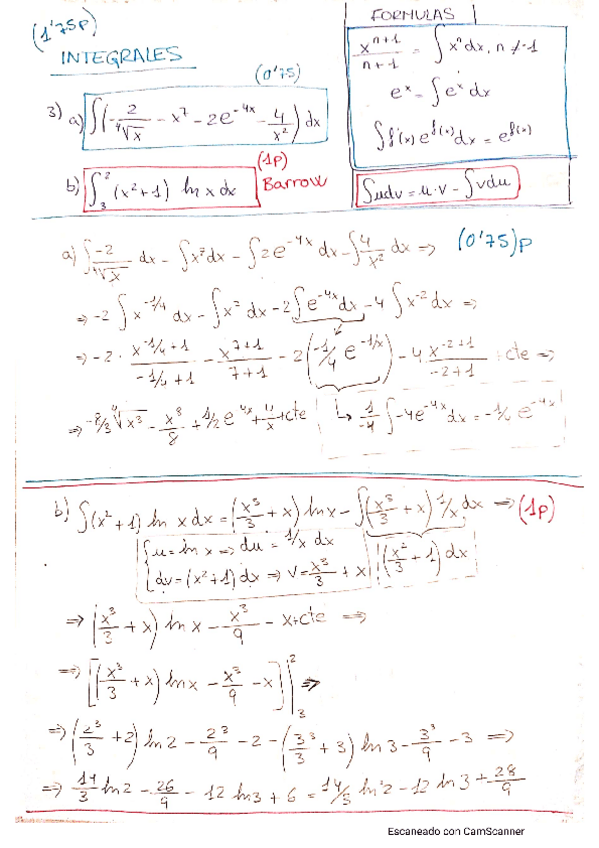 (1'75p)
INTEGRALES
(0'75)
3) a) ∫(-2/⁴√x - x⁷ - 2e^(-4x) - 4/x²) dx
(1p)
b) ∫₃² (x²+1) ln x dx Barrow
FORMULAS
x^(n+1)/(n+1) = ∫xⁿdx, n≠-1
eˣ = ∫eˣ dx
∫f'(x) e^(f(x)) dx = e^(f(x))
∫udv = u·v - ∫vdu
a) ∫-2/⁴√x dx - ∫x⁷dx - ∫2e^(-4x) dx - ∫4/x² dx ⇒ (0'75)p
⇒ -2 ∫x^(-1/4) dx - ∫x⁷ dx - 2∫e^(-4x)dx - 4 ∫x^(-2) dx ⇒
⇒ -2 · x^(-1/4+1)/(-1/4+1) - x^(7+1)/(7+1) - 2(-1/4 e^(-4x)) - 4 x^(-2+1)/(-2+1) + cte ⇒
⇒ -8/3 ⁴√x³ - x⁸/8 + 1/2 e^(-4x) + 4/x + cte
↳ 1/-4 ∫-4e^(-4x)dx = -1/4 e^(-4x)
b) ∫(x²+1) ln x dx = (x³/3 + x) ln x - ∫(x³/3 + x) 1/x dx ⇒ (1p)
u = ln x ⇒ du = 1/x dx
dv = (x²+1) dx ⇒ v = x³/3 + x
(x²/3 + 1) dx
⇒ (x³/3 + x) ln x - x³/9 - x + cte ⇒
⇒ [(x³/3 + x) ln x - x³/9 - x]|₃² ⇒
⇒ (2³/3 + 2) ln 2 - 2³/9 - 2 - (3³/3 + 3) ln 3 - 3³/9 - 3 ⇒
⇒ 14/3 ln 2 - 26/9 - 12 ln 3 + 6 = 14/3 ln 2 - 12 ln 3 + 28/9
Escaneado con CamScanner